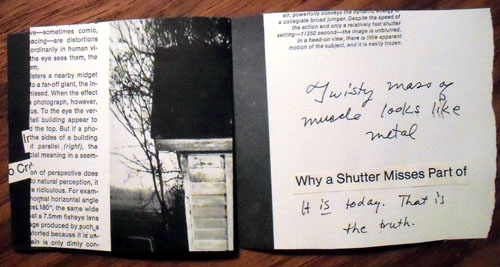 ve—sometimes comic,
acing—are distortions
ordinarily in human vi-
the eye sees them, the
em.
isters a nearby midget
to a far-off giant, the in-
missed. When the effect
photograph, however,
us. To the eye the ver-
tall building appear to
d the top. But if a pho-
the sides of a building
it parallel (right), the
cial meaning in a seem-
In
o Cr
on of perspective does
o natural perception, it
re ridiculous. For exam-
normal horizontal angle
ost 180°, the same wide
at a 7.5mm fisheye lens
age produced by such a
storted because it is un-
ain is only dimly con-
air, powerfully conveys the dynamic energy of
a collegiate broad jumper. Despite the speed of
the action and only a relatively fast shutter
setting—1/250 second—the image is unblurred.
In a head-on view, there is little apparent
motion of the subject, and it is easily frozen.
Twisty mass of
muscle looks like
metal
Why a Shutter Misses Part of
It is today. That is
the truth.